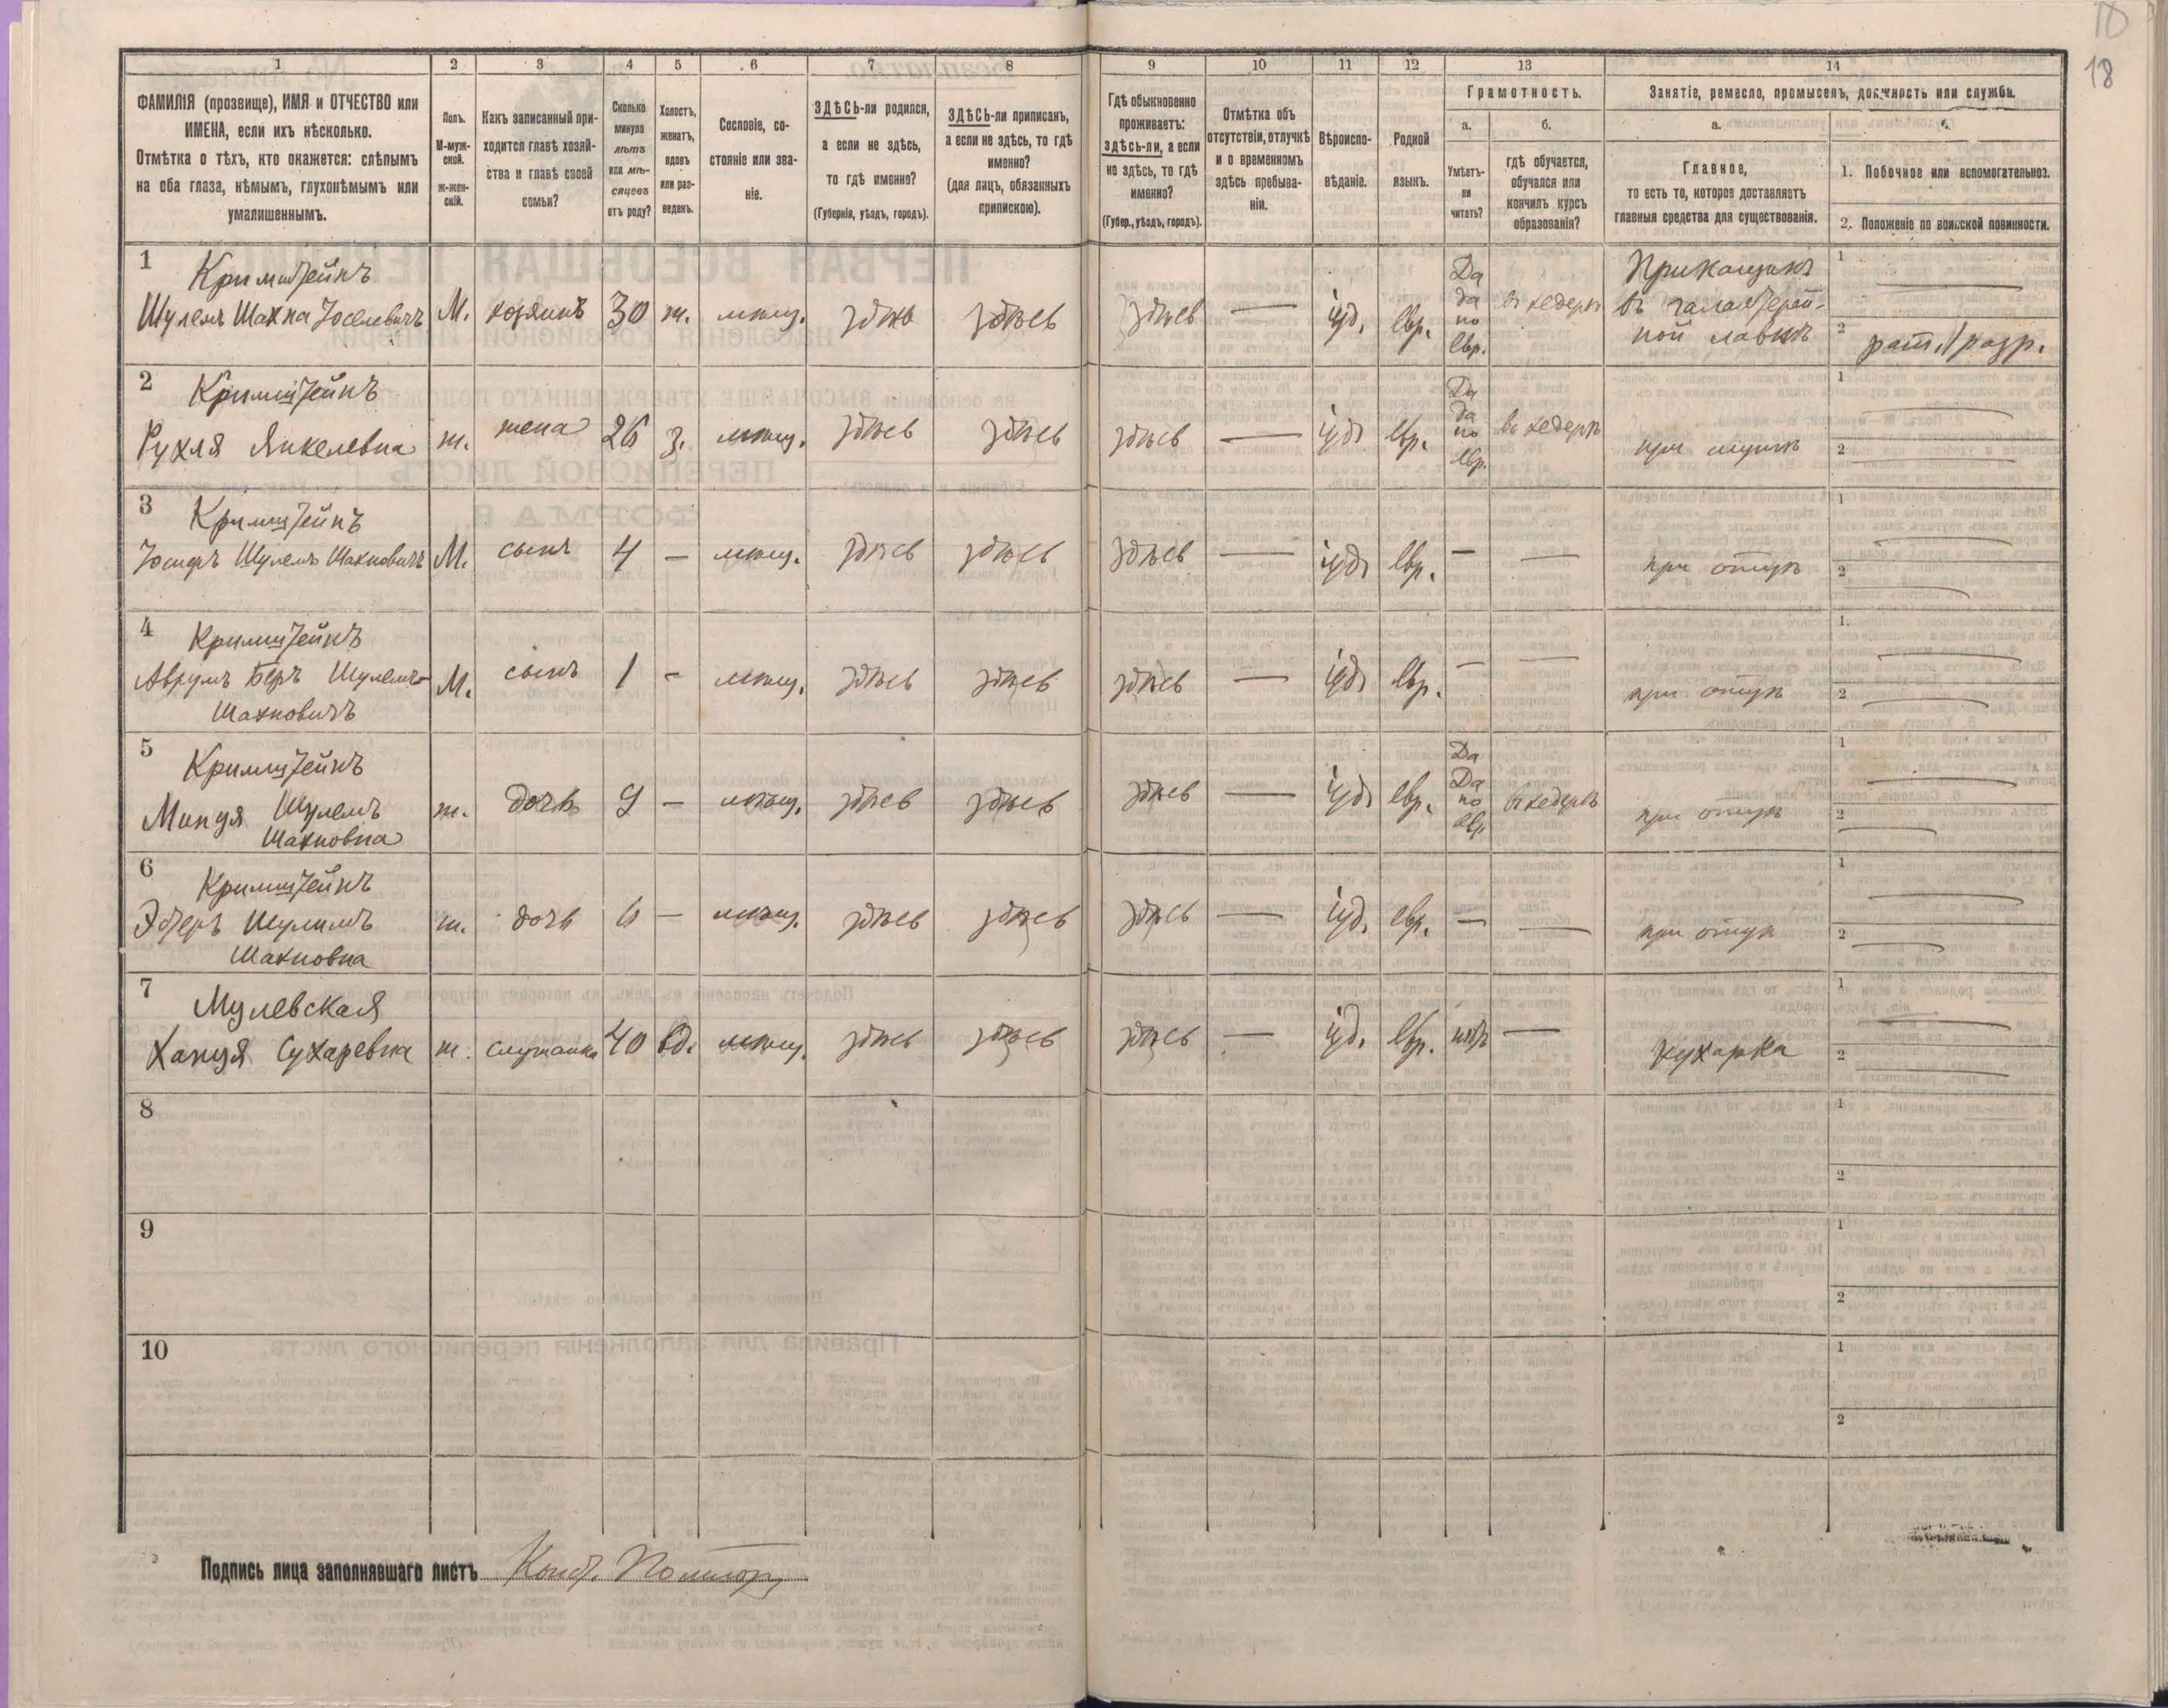 18
18
1 2 3 4 5 6 7 8 9 10 11 12 13 14
ФАМИЛІЯ (прозвище), ИМЯ и ОТЧЕСТВО или
ИМЕНА, если ихъ нѣсколько.
Отмѣтка о тѣхъ, кто окажется: слѣпымъ
на оба глаза, нѣмымъ, глухонѣмымъ или
умалишеннымъ.
Полъ.
М-муж-
ской.
Ж-жен-
скій.
Какъ записанный при-
ходится главѣ хозяй-
ства и главѣ своей
семьи?
Сколько
минуло
лѣтъ
или мѣ-
сяцевъ
отъ роду?
Холостъ,
женатъ,
вдовъ
или раз-
веденъ.
Сословіе, со-
стояніе или зва-
ніе.
ЗДѢСЬ-ли родился,
а если не здѣсь,
то гдѣ именно?
(Губернія, уѣздъ, городъ).
ЗДѢСЬ-ли приписанъ,
а если не здѣсь, то гдѣ
именно?
(для лицъ, обязанныхъ
припискою).
Гдѣ обыкновенно
проживаетъ:
здѣсь-ли, а если
не здѣсь, то гдѣ
именно?
(Губер., уѣздъ, городъ).
Отмѣтка объ
отсутствіи, отлучкѣ
и о временномъ
здѣсь пребыва-
ніи.
Вѣроиспо-
вѣданіе.
Родной
языкъ.
Грамотность.
а.
Умѣетъ-
ли
читать?
б.
гдѣ обучается,
обучался или
кончилъ курсъ
образованія?
Занятіе, ремесло, промыселъ, должность или служба.
а.
Главное,
то есть то, которое доставляетъ
главныя средства для существованія.
б.
1. Побочное или вспомогательное.
2. Положеніе по воинской повинности.
1
Кримштейнъ
Шулемъ Шахна Іоселевичъ
М. хозяинъ 30 ж. мѣщ. здѣсь здѣсь здѣсь — іуд. евр.
Да
да
по
евр.
въ хедерѣ
Прикащикъ
въ галантерей-
ной лавкѣ
1 —
2 рат. 1 разр.
2
Кримштейнъ
Рухля Янкелевна
ж. жена 26 з. мѣщ. здѣсь здѣсь здѣсь — іуд. евр.
Да
да
по
евр.
въ хедерѣ
при мужѣ
1 —
2 —
3
Кримштейнъ
Іосифъ Шулемъ Шахновичъ
М. сынъ 4 — мѣщ. здѣсь здѣсь здѣсь — іуд. евр. — — при отцѣ
1 —
2 —
4
Кримштейнъ
Аврумъ Беръ Шулемъ-
Шахновичъ
М. сынъ 1 - мѣщ. здѣсь здѣсь здѣсь — іуд. евр. — — при отцѣ
1. —
2 —
5
Кримштейнъ
Минця Шулемъ
Шахновна
ж. дочь 9 — мѣщ. здѣсь здѣсь здѣсь — іуд. евр.
Да
Да
по
евр
въ хедерѣ
при отцѣ
1 —
2 —
6
Кримштейнъ
Эстеръ Шулимъ
Шахновна
ж. дочь 6 — мѣщ. здѣсь здѣсь здѣсь — іуд. евр. — — при отцѣ
1 —
2 —
7
Мулевская
Ханця Сухаревна
ж. служанка 40 вд. мѣщ. здѣсь здѣсь здѣсь — іуд. евр. нѣтъ — кухарка
1 —
2 —
8
1
2
9
1
2
10
1
2
Подпись лица заполнявшаго листъ